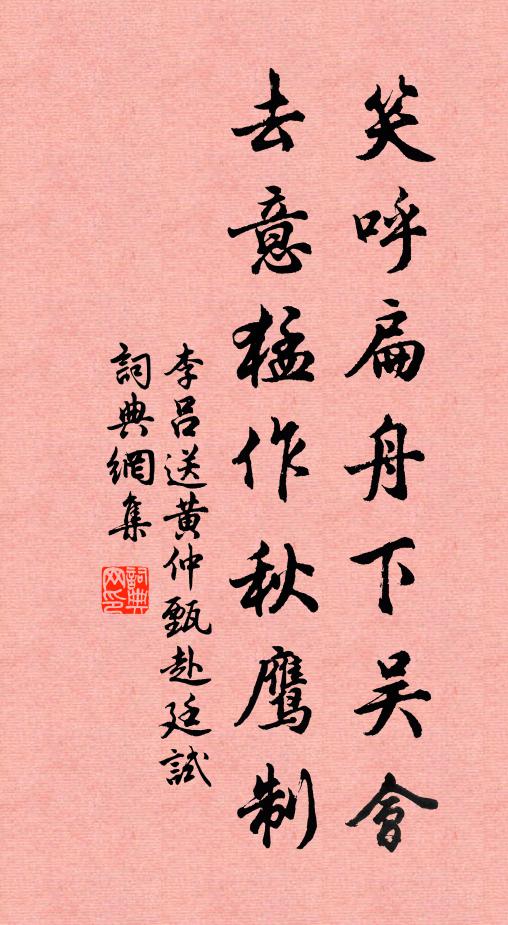 笑呼扁舟下吴會
去意猛作秋鹰制
李吕送黄仲甄赴廷試
詞典網集
詞典网印